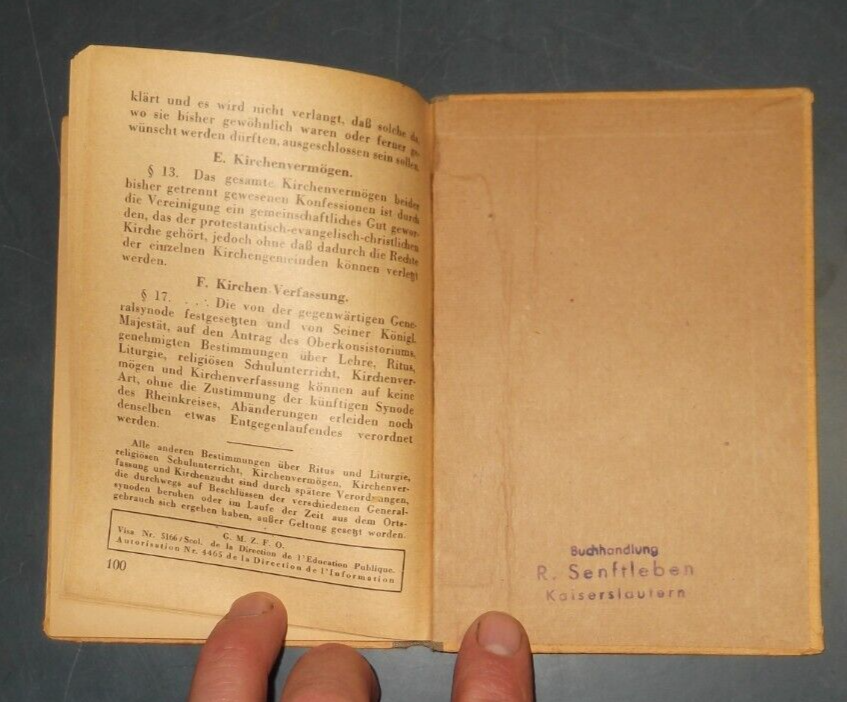 klärt und es wird nicht verlangt, daß solche da,
wo sie bisher gewöhnlich waren oder ferner ge-
wünscht werden dürften, ausgeschlossen sein sollen.
E. Kirchenvermögen.
§ 13. Das gesamte Kirchenvermögen beider
bisher getrennt gewesenen Konfessionen ist durch
die Vereinigung ein gemeinschaftliches Gut gewor-
den, das der protestantisch-evangelisch-christlichen
Kirche gehört, jedoch ohne daß dadurch die Rechte
der einzelnen Kirchengemeinden können verletzt
werden.
F. Kirchen Verfassung.
§ 17. . . . Die von der gegenwärtigen Gene-
ralsynode festgesetzten und von Seiner Königl.
Majestät, auf den Antrag des Oberkonsistoriums,
genehmigten Bestimmungen über Lehre, Ritus,
Liturgie, religiösen Schulunterricht, Kirchenver-
mögen und Kirchenverfassung können auf keine
Art, ohne die Zustimmung der künftigen Synode
des Rheinkreises, Abänderungen erleiden noch
denselben etwas Entgegenlaufendes verordnet
werden.
Alle anderen Bestimmungen über Ritus und Liturgie,
religiösen Schulunterricht, Kirchenvermögen, Kirchenver-
fassung und Kirchenzucht sind durch spätere Verordnungen,
die durchwegs auf Beschlussen der verschiedenen General-
synoden beruhen oder im Laufe der Zeit aus dem Orts-
gebrauch sich ergeben haben, außer Geltung gesetzt worden.
G. M. Z. F. O.
Visa Nr. 5166/Scol. de la Direction de l'Education Publique.
Autorisation Nr. 4465 de la Direction de l'Information
100
Buchhandlung
R. Senftleben
Kaiserslautern